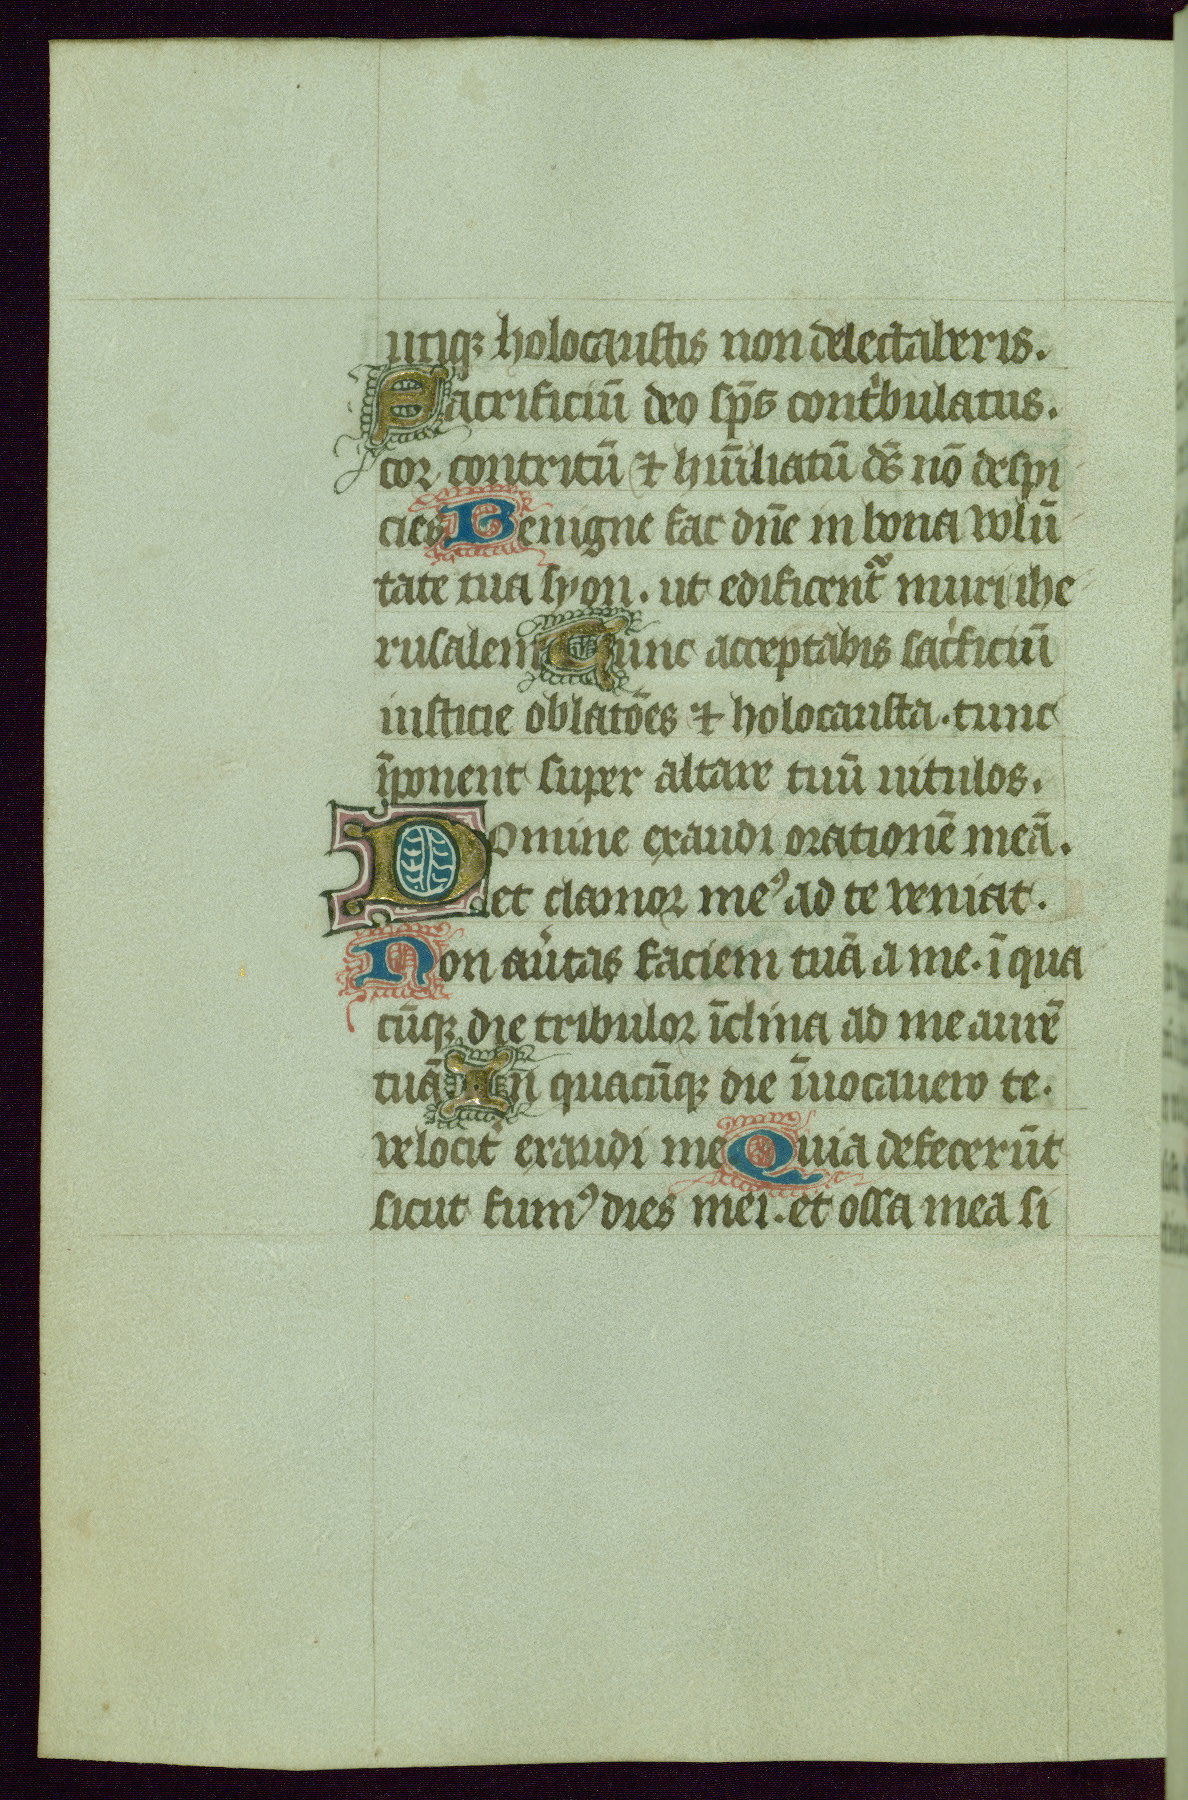 utiqꝫ holocaustis non delectaberis.
Sacrificiū deo sp̄s cont̍bulatus.
cor contritū ⁊ hūiliatū ds̄ nō despi
cies Benigne fac dn̄e in bona volū
tate tua syon. ut edificent᷑ muri ihe
rusalem Tunc acceptabis sac̍ficiū
iusticie oblatōes ⁊ holocausta. tunc
īponent super altare tuū uitulos.
Domine exaudi orationē meā.
et clamor meꝰ ad te veniat.
Non au̍tas faciem tuā a me. ī qua
cūqꝫ die tribulor īclina ad me aurē
tuā In quacūqꝫ die īuocauero te.
velocit̍ exaudi me Quia defecerūt
sicut fumꝰ dies mei. et ossa mea si